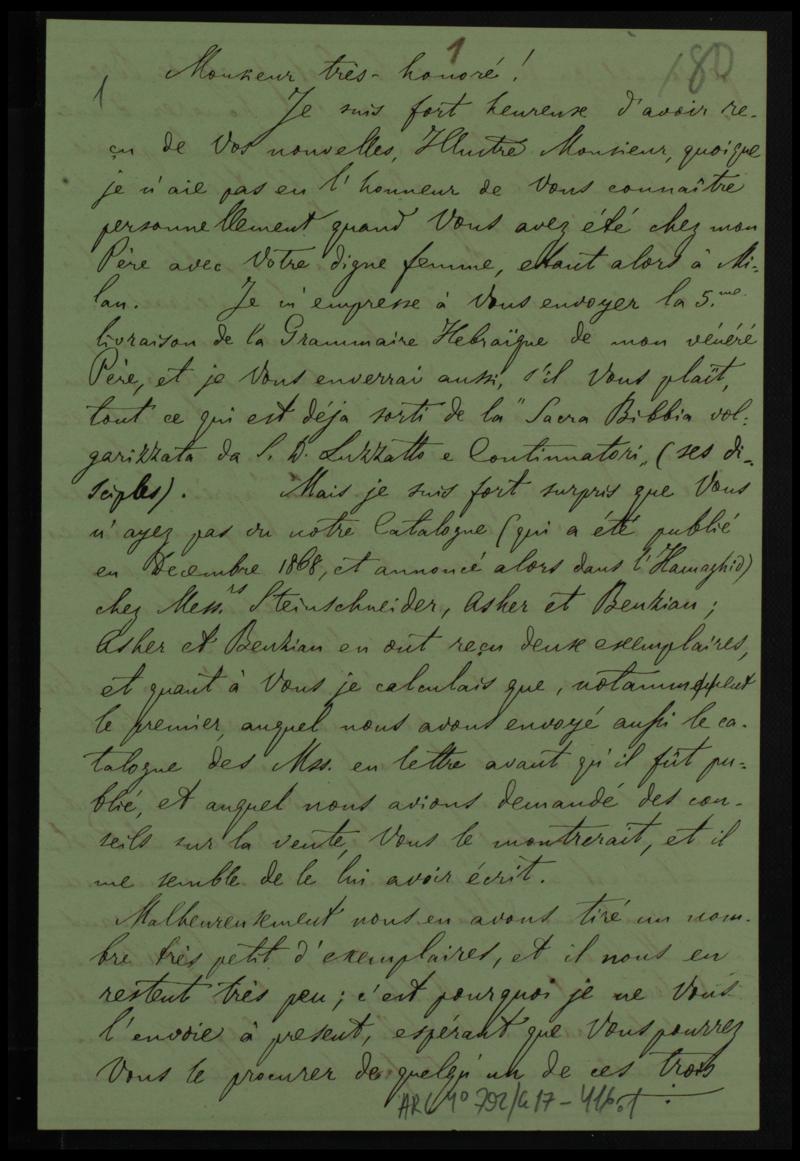 1
180
1
Monsieur très-honoré!
Je suis fort heureuse d'avoir re-
çu de Vos nouvelles, Illustre Monsieur, quoique
je n'aie pas eu l'honneur de Vous connaître
personnellement quand Vous avez été chez mon
Père avec Votre digne femme, etant alors à Mi-
lan. Je m'empresse à Vous envoyer la 5.me
livraison de la Grammaire Hebraïque de mon vénéré
Père, et je Vous enverrai aussi, s'il Vous plaît,
tout ce qui est déja sorti de la "Sacra Bibbia vol-
garizzata da S. D. Luzzatto e Continuatori„ (ses di-
sciples). Mais je suis fort surpris que Vous
n'ayez pas vu notre Catalogue (qui a été publié
en Decembre 1868, et annoncé alors dans l'Hamaghid)
chez Mess.rs Steinschneider, Asher et Benzian;
Asher et Benzian en ont reçu deux exemplaires,
et quant à Vous je calculais que, notamment
le premier, auquel nous avons envoyé aussi le ca-
talogue des Mss. en lettre avant qu'il fût pu-
blié, et auquel nous avions demandé des con-
seils sur la vente, Vous le montrerait, et il
me semble de le lui avoir écrit.
Malheureusement nous en avons tiré un nom-
bre très petit d'exemplaires, et il nous en
restent très peu; c'est pourquoi je ne Vous
l'envoie à present, espérant que Vous pourrez
Vous le procurer de quelqu'un de ces trois
ARC 4º 792/G17-416.1